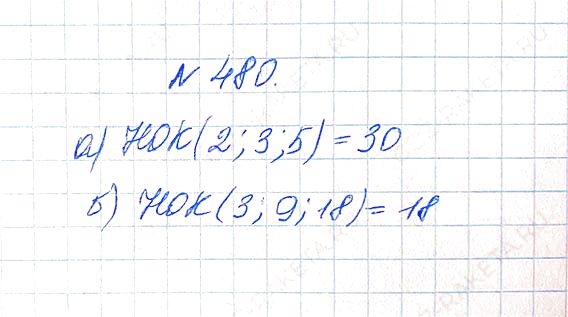 N 480.
а) НОК(2; 3; 5) = 30
б) НОК(3; 9; 18) = 18